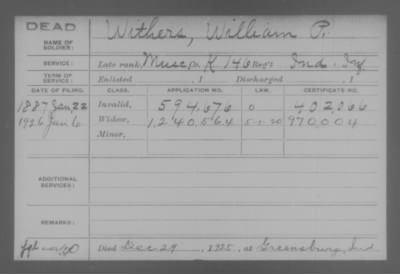 DEAD
NAME OF SOLDIER: Withers, William P.
SERVICE: Late rank, Musc, Co. K 146 Reg't Ind. Inf
TERM OF SERVICE: Enlisted , 1 Discharged , 1
DATE OF FILING. CLASS. APPLICATION NO. LAW. CERTIFICATE NO.
1887 Jan. 22 Invalid, 594,676 0 402,066
1926 Jan 6 Widow, 1,240,564 5-1-20 970,004
Minor,
ADDITIONAL SERVICES:
REMARKS:
Died Dec. 29, 1925, at Greensburg, Ind.